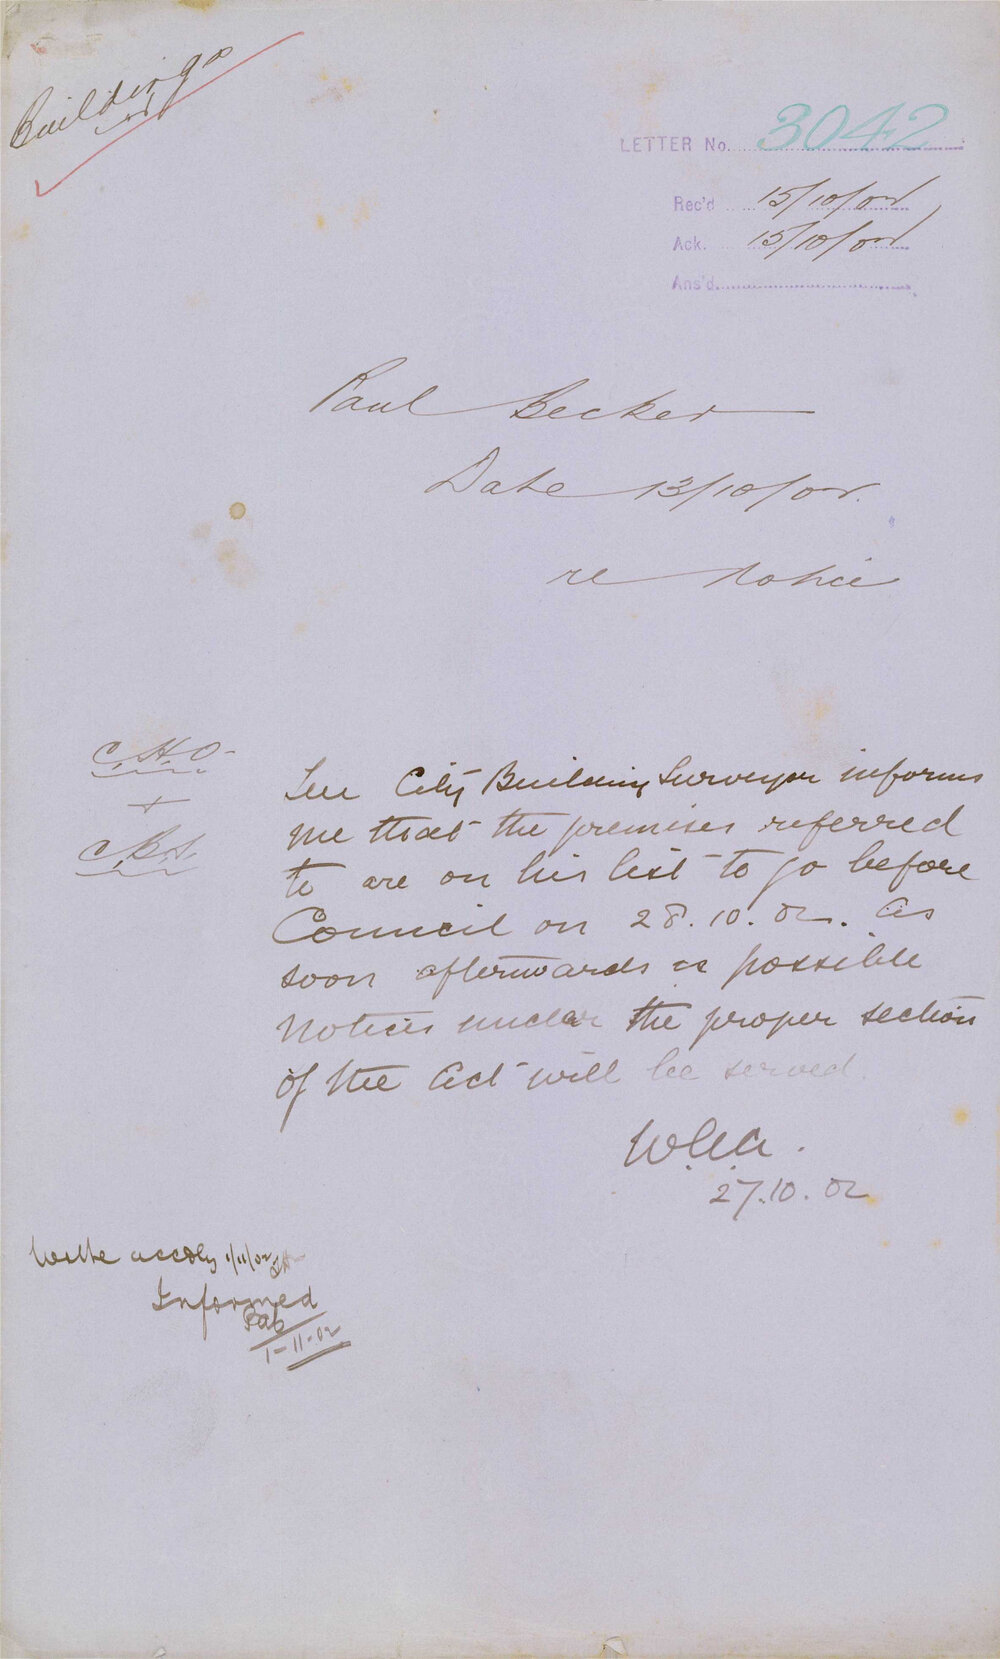 Buildings
LETTER No. 3042
Rec'd 15/10/02
Ack. 15/10/02
Ans'd.
Paul Becker
Date 13/10/02.
re Notice
C.H.O.
+
C.B.S.
The City Building Surveyor informs
me that the premises referred
to are on his list to go before
Council on 28.10.02. As
soon afterwards as possible
Notices under the proper section
of the Act will be served.
W.G.A.
27.10.02
Write accdly 1/11/02
Informed
1-11-02